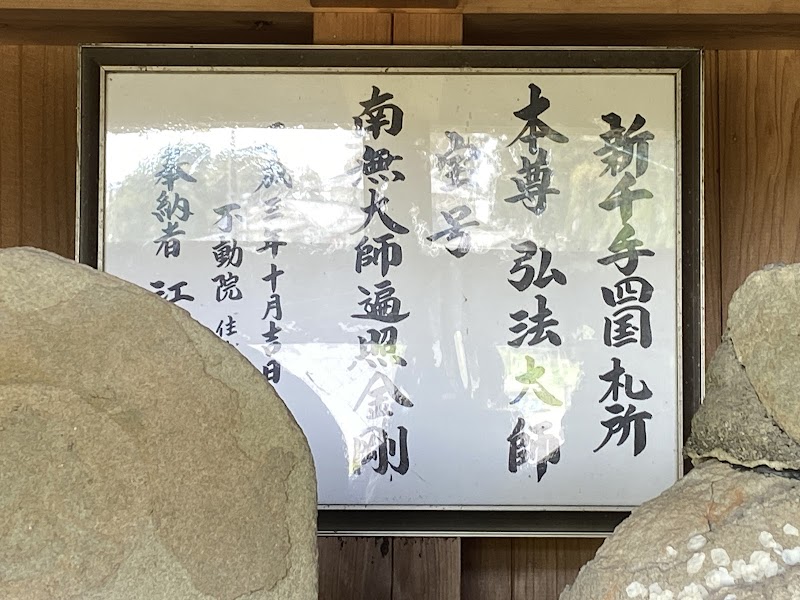 新千手四国札所
本尊 弘法大師
宝号
南無大師遍照金剛
成三年十月吉日
不動院 住
奉納者 江